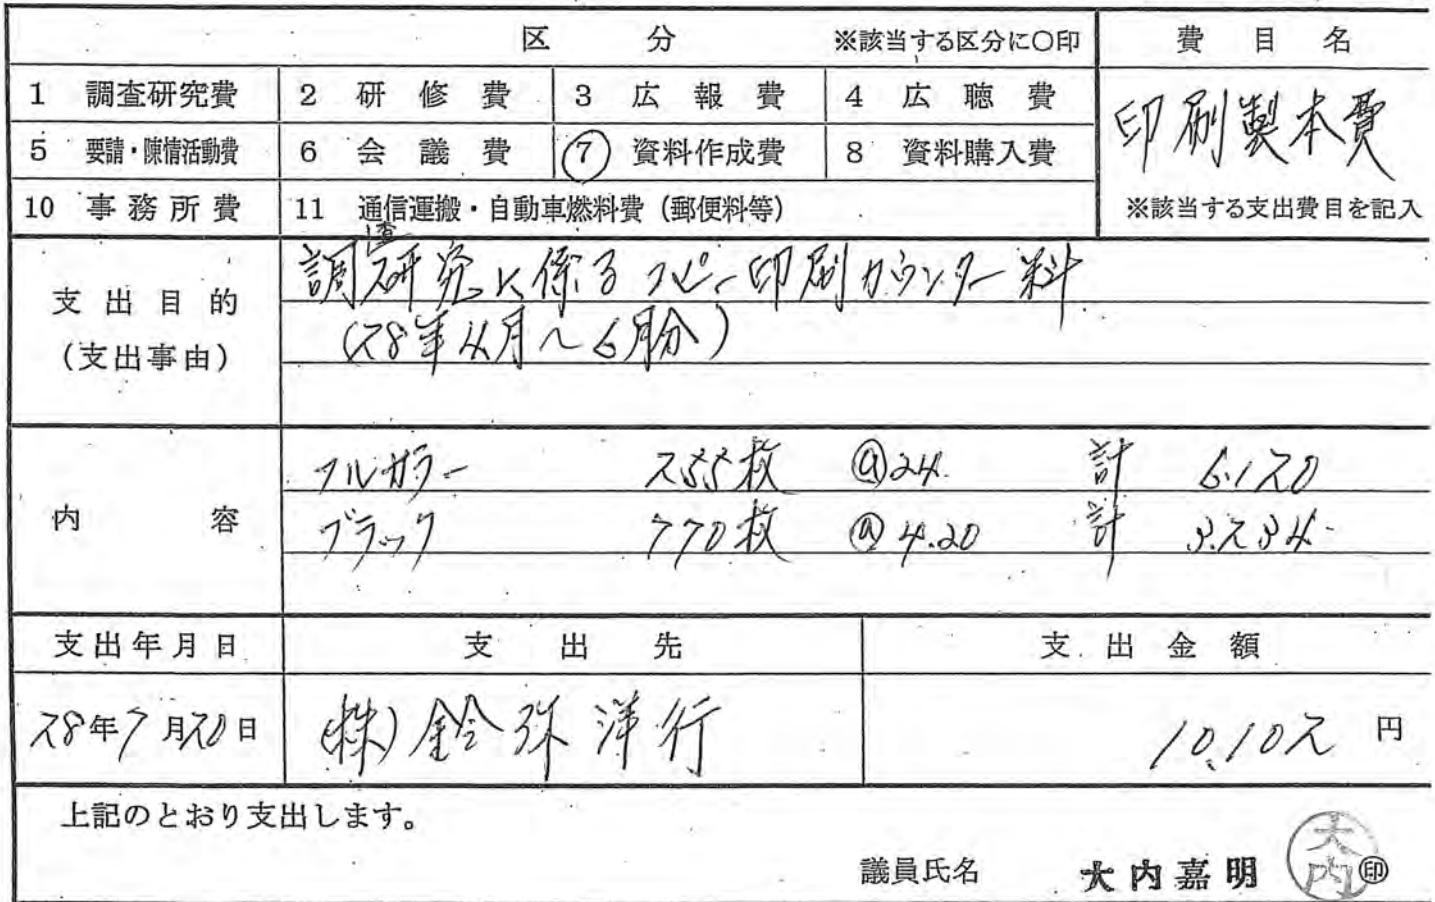 区分 ※該当する区分に○印 費目名
1 調査研究費 2 研修費 3 広報費 4 広聴費
印刷製本費
5 要請・陳情活動費 6 会議費 7 資料作成費 8 資料購入費
10 事務所費 11 通信運搬・自動車燃料費（郵便料等） ※該当する支出費目を記入
支出目的
（支出事由）
調査研究に係るコピー印刷カウンター料
（28年4月～6月分）
内容
フルカラー 255枚 @24. 計 6.120
ブラック 770枚 @4.20 計 3.234.
支出年月日 支出先 支出金額
28年7月20日 （株）鈴弥洋行 10.102円
上記のとおり支出します。
議員氏名 大内嘉明 大内 印